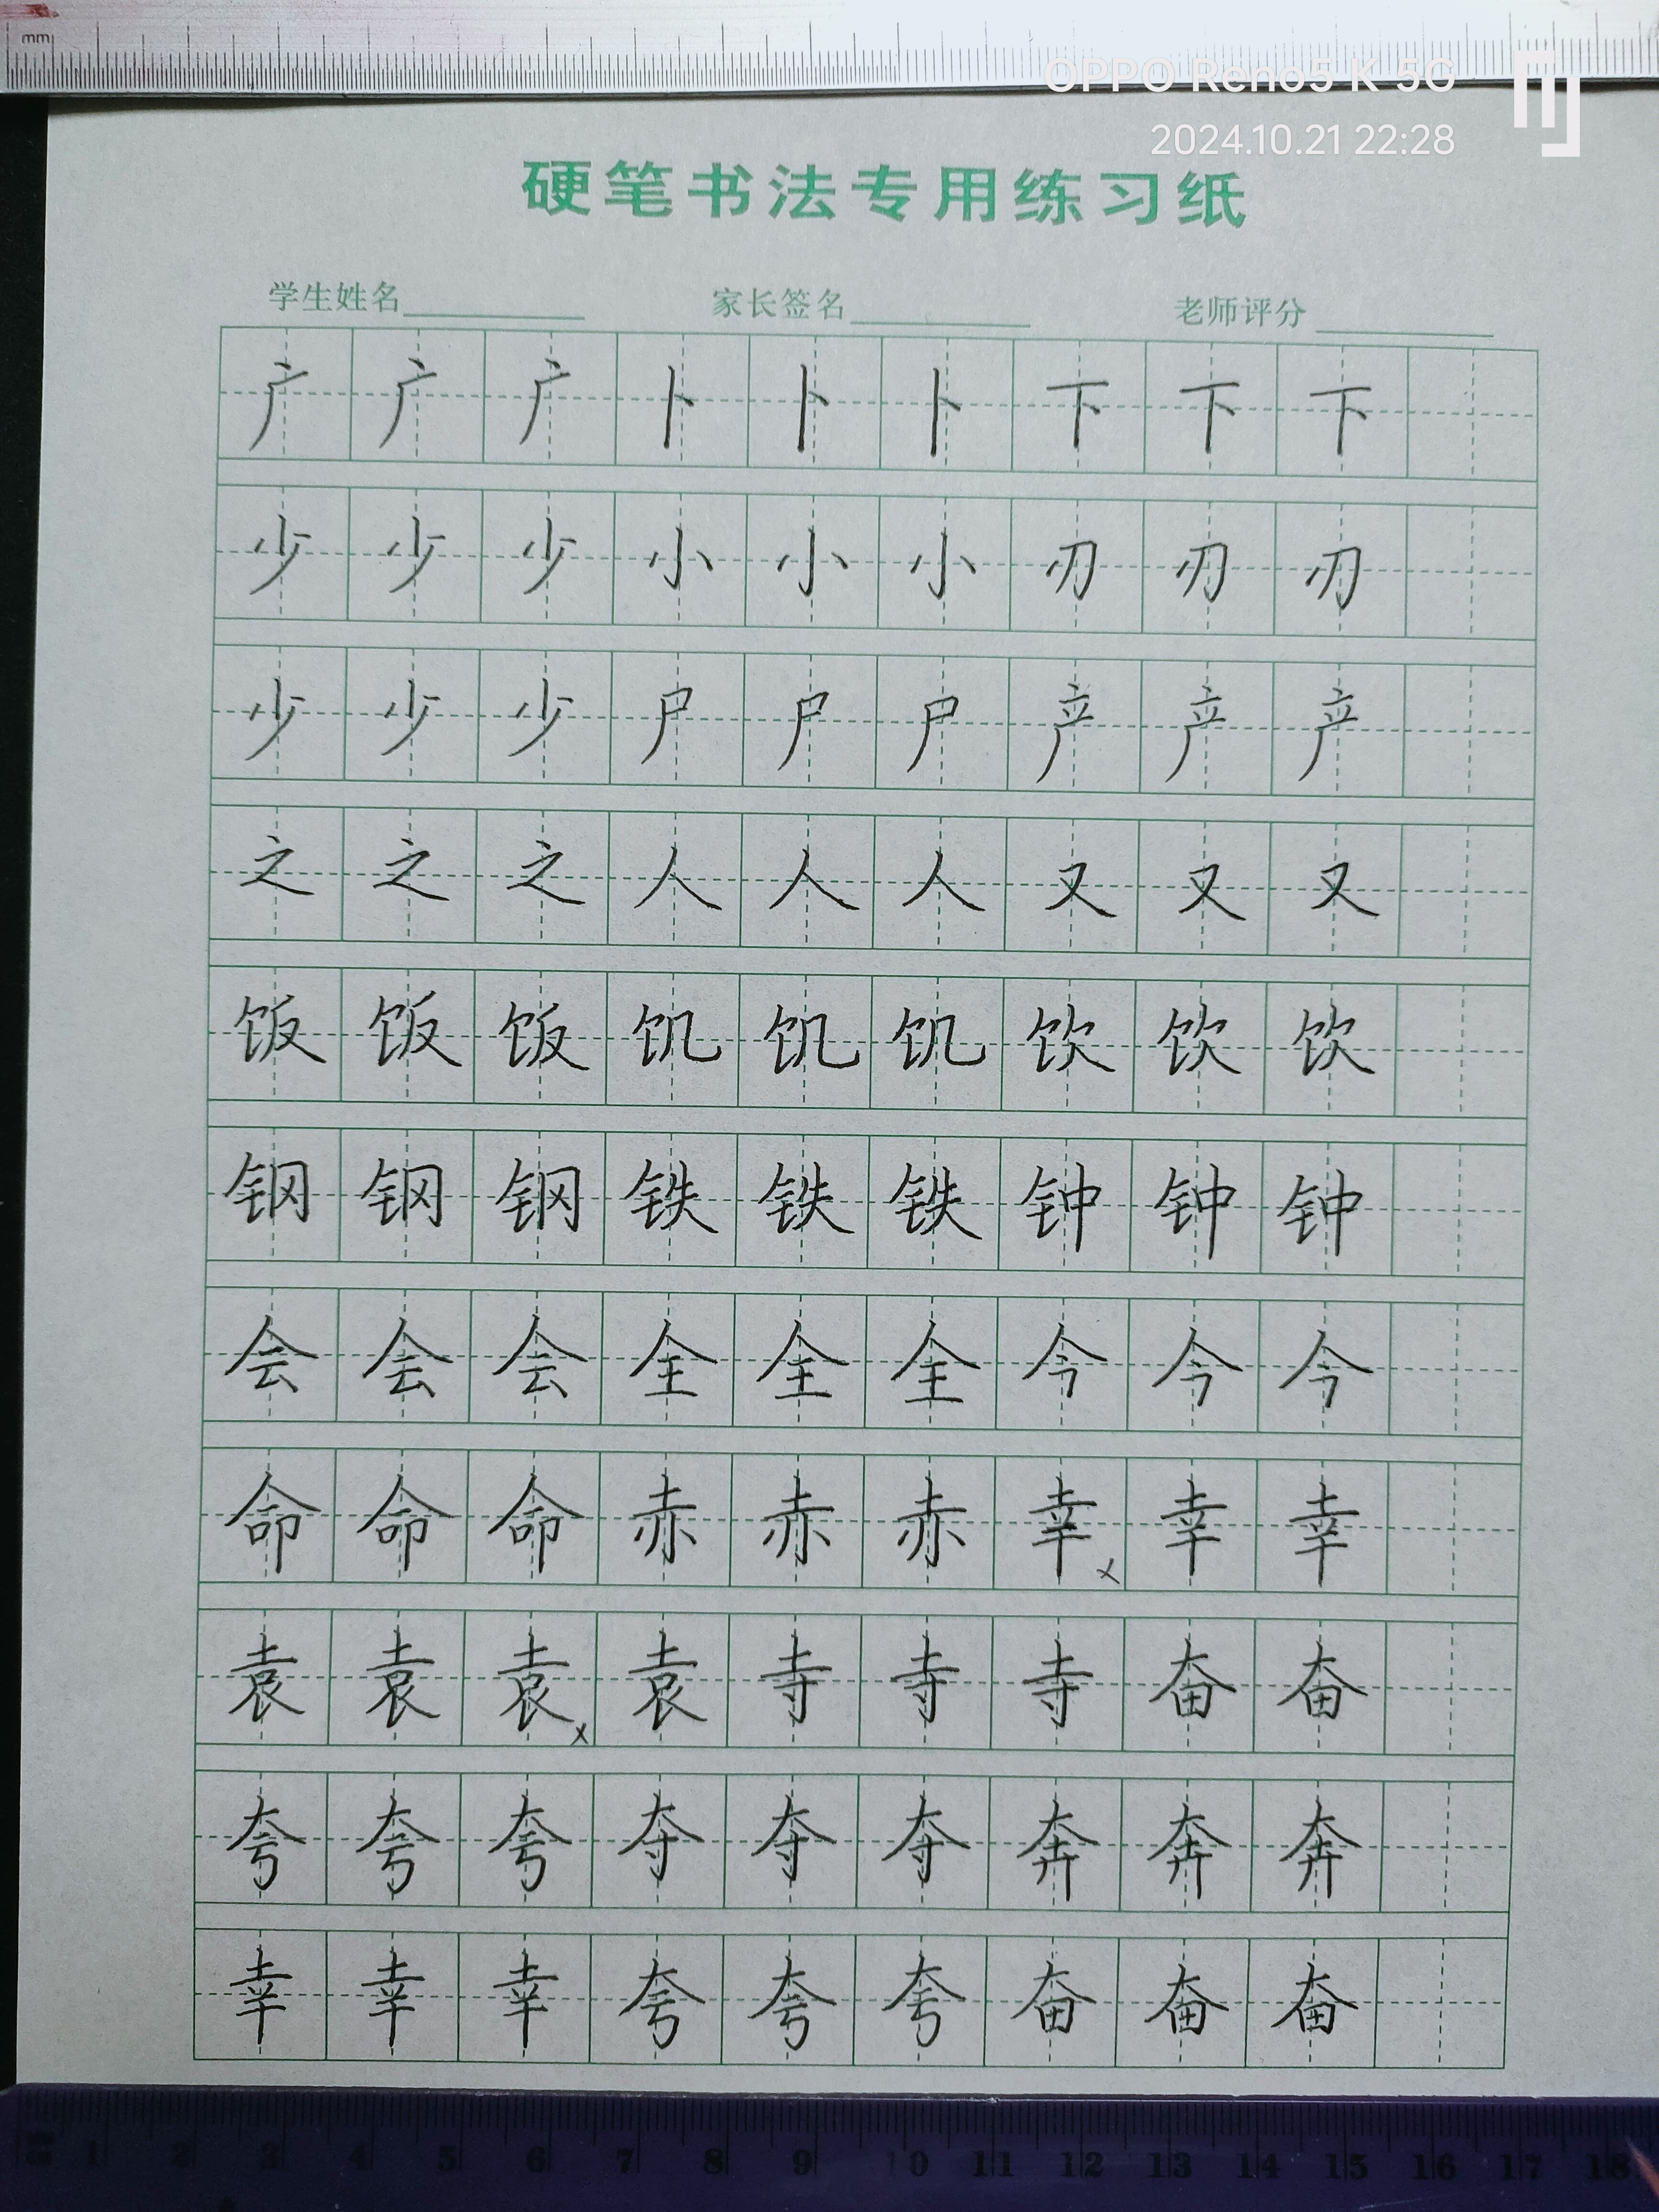 mm
OPPO Reno5 K 5G
2024.10.21 22:28
硬笔书法专用练习纸
学生姓名 家长签名 老师评分
广 广 广 卜 卜 卜 下 下 下
少 少 少 小 小 小 刃 刃 刃
少 少 少 尸 尸 尸 产 产 产
之 之 之 人 人 人 又 又 又
饭 饭 饭 饥 饥 饥 饮 饮 饮
钢 钢 钢 铁 铁 铁 钟 钟 钟
会 会 会 全 全 全 今 今 今
命 命 命 赤 赤 赤 幸 x 幸 幸
袁 袁 袁 x 袁 寺 寺 寺 奋 奋
夸 夸 夸 夺 夺 夺 奔 奔 奔
幸 幸 幸 夸 夸 夸 奋 奋 奋
1 2 3 4 5 6 7 8 9 10 11 12 13 14 15 16 17 18